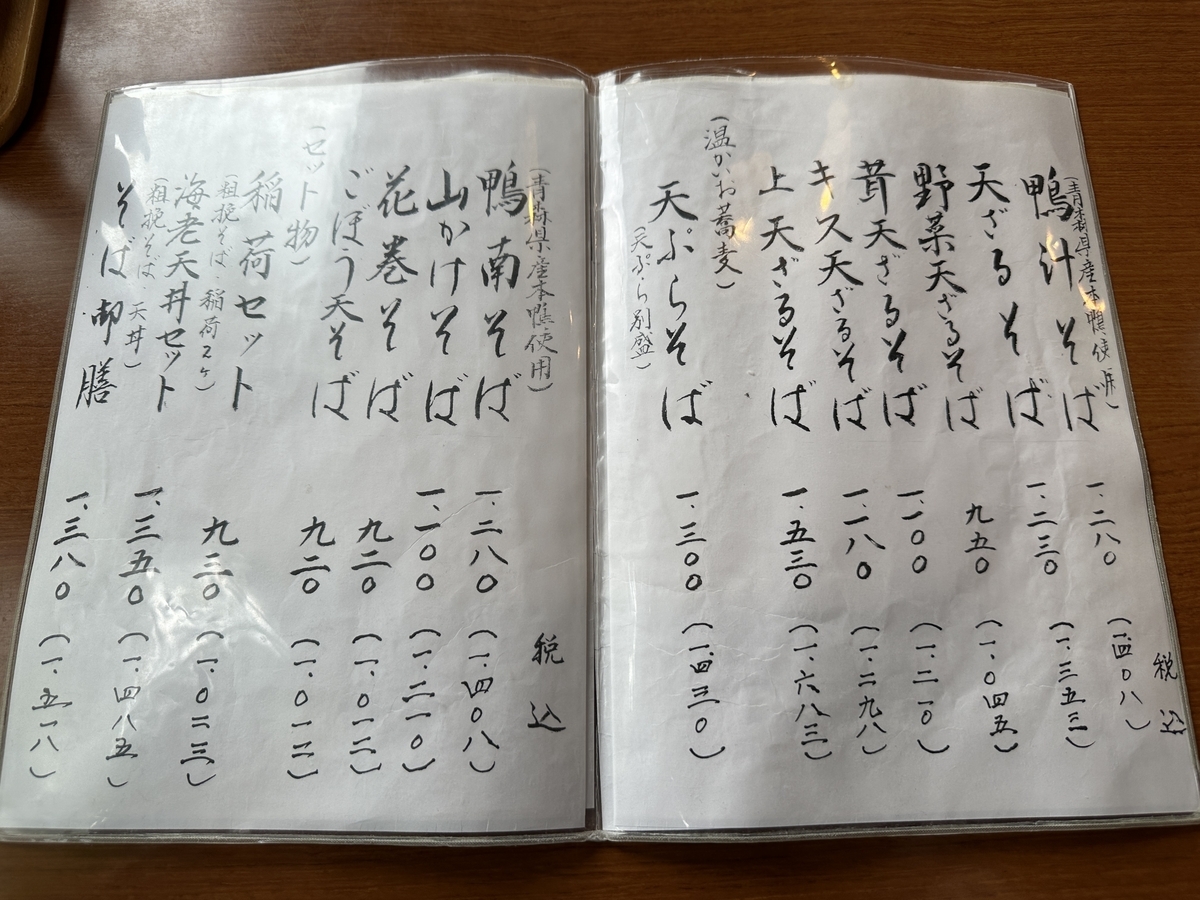 税込
(青森県産本鴨使用)
鴨汁そば 一、二八〇 (一、四〇八)
天ざるそば 一、二三〇 (一、三五三)
野菜天ざるそば 九五〇 (一、〇四五)
茸天ざるそば 一、一〇〇 (一、二一〇)
キス天ざるそば 一、一八〇 (一、二九八)
上天ざるそば 一、五三〇 (一、六八三)
(温かいお蕎麦)
天ぷらそば 一、三〇〇 (一、四三〇)
(天ぷら別盛)
税込
(青森県産本鴨使用)
鴨南そば 一、二八〇 (一、四〇八)
山かけそば 一、一〇〇 (一、二一〇)
花巻そば 九二〇 (一、〇一二)
ごぼう天そば 九二〇 (一、〇一二)
(セット物)
稲荷セット 九三〇 (一、〇二三)
(粗挽そば、稲荷2ヶ)
海老天丼セット 一、三五〇 (一、四八五)
(粗挽そば、天丼)
そば御膳 一、三八〇 (一、五一八)